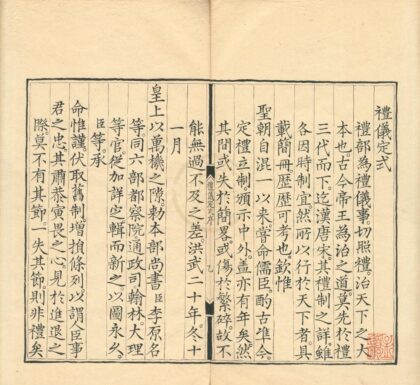 禮儀定式
禮部為禮儀事切照禮治天下之大
本也古今帝王為治之道莫先於禮
三代而下迄漢唐宋其禮制之詳雖
各因時制宜然所以行於天下者具
載簡冊歷歷可考也欽惟
聖朝自混一以來嘗命儒臣酌古準今
定禮立制頒示中外葢亦有年矣然
其間或失於簡畧或傷於繁碎故不
能無過不及之差洪武二十年冬十
一月
皇上以萬機之隙勑本部尚書臣李原名
等同六部都察院通政司翰林大理
等官從加詳定輯而新之以圖永久
臣等承
命惟謹伏取舊制增損條列以謂人臣事
君之忠其肅恭寅畏之心見於進退之
際莫不有其節一失其節則非禮矣